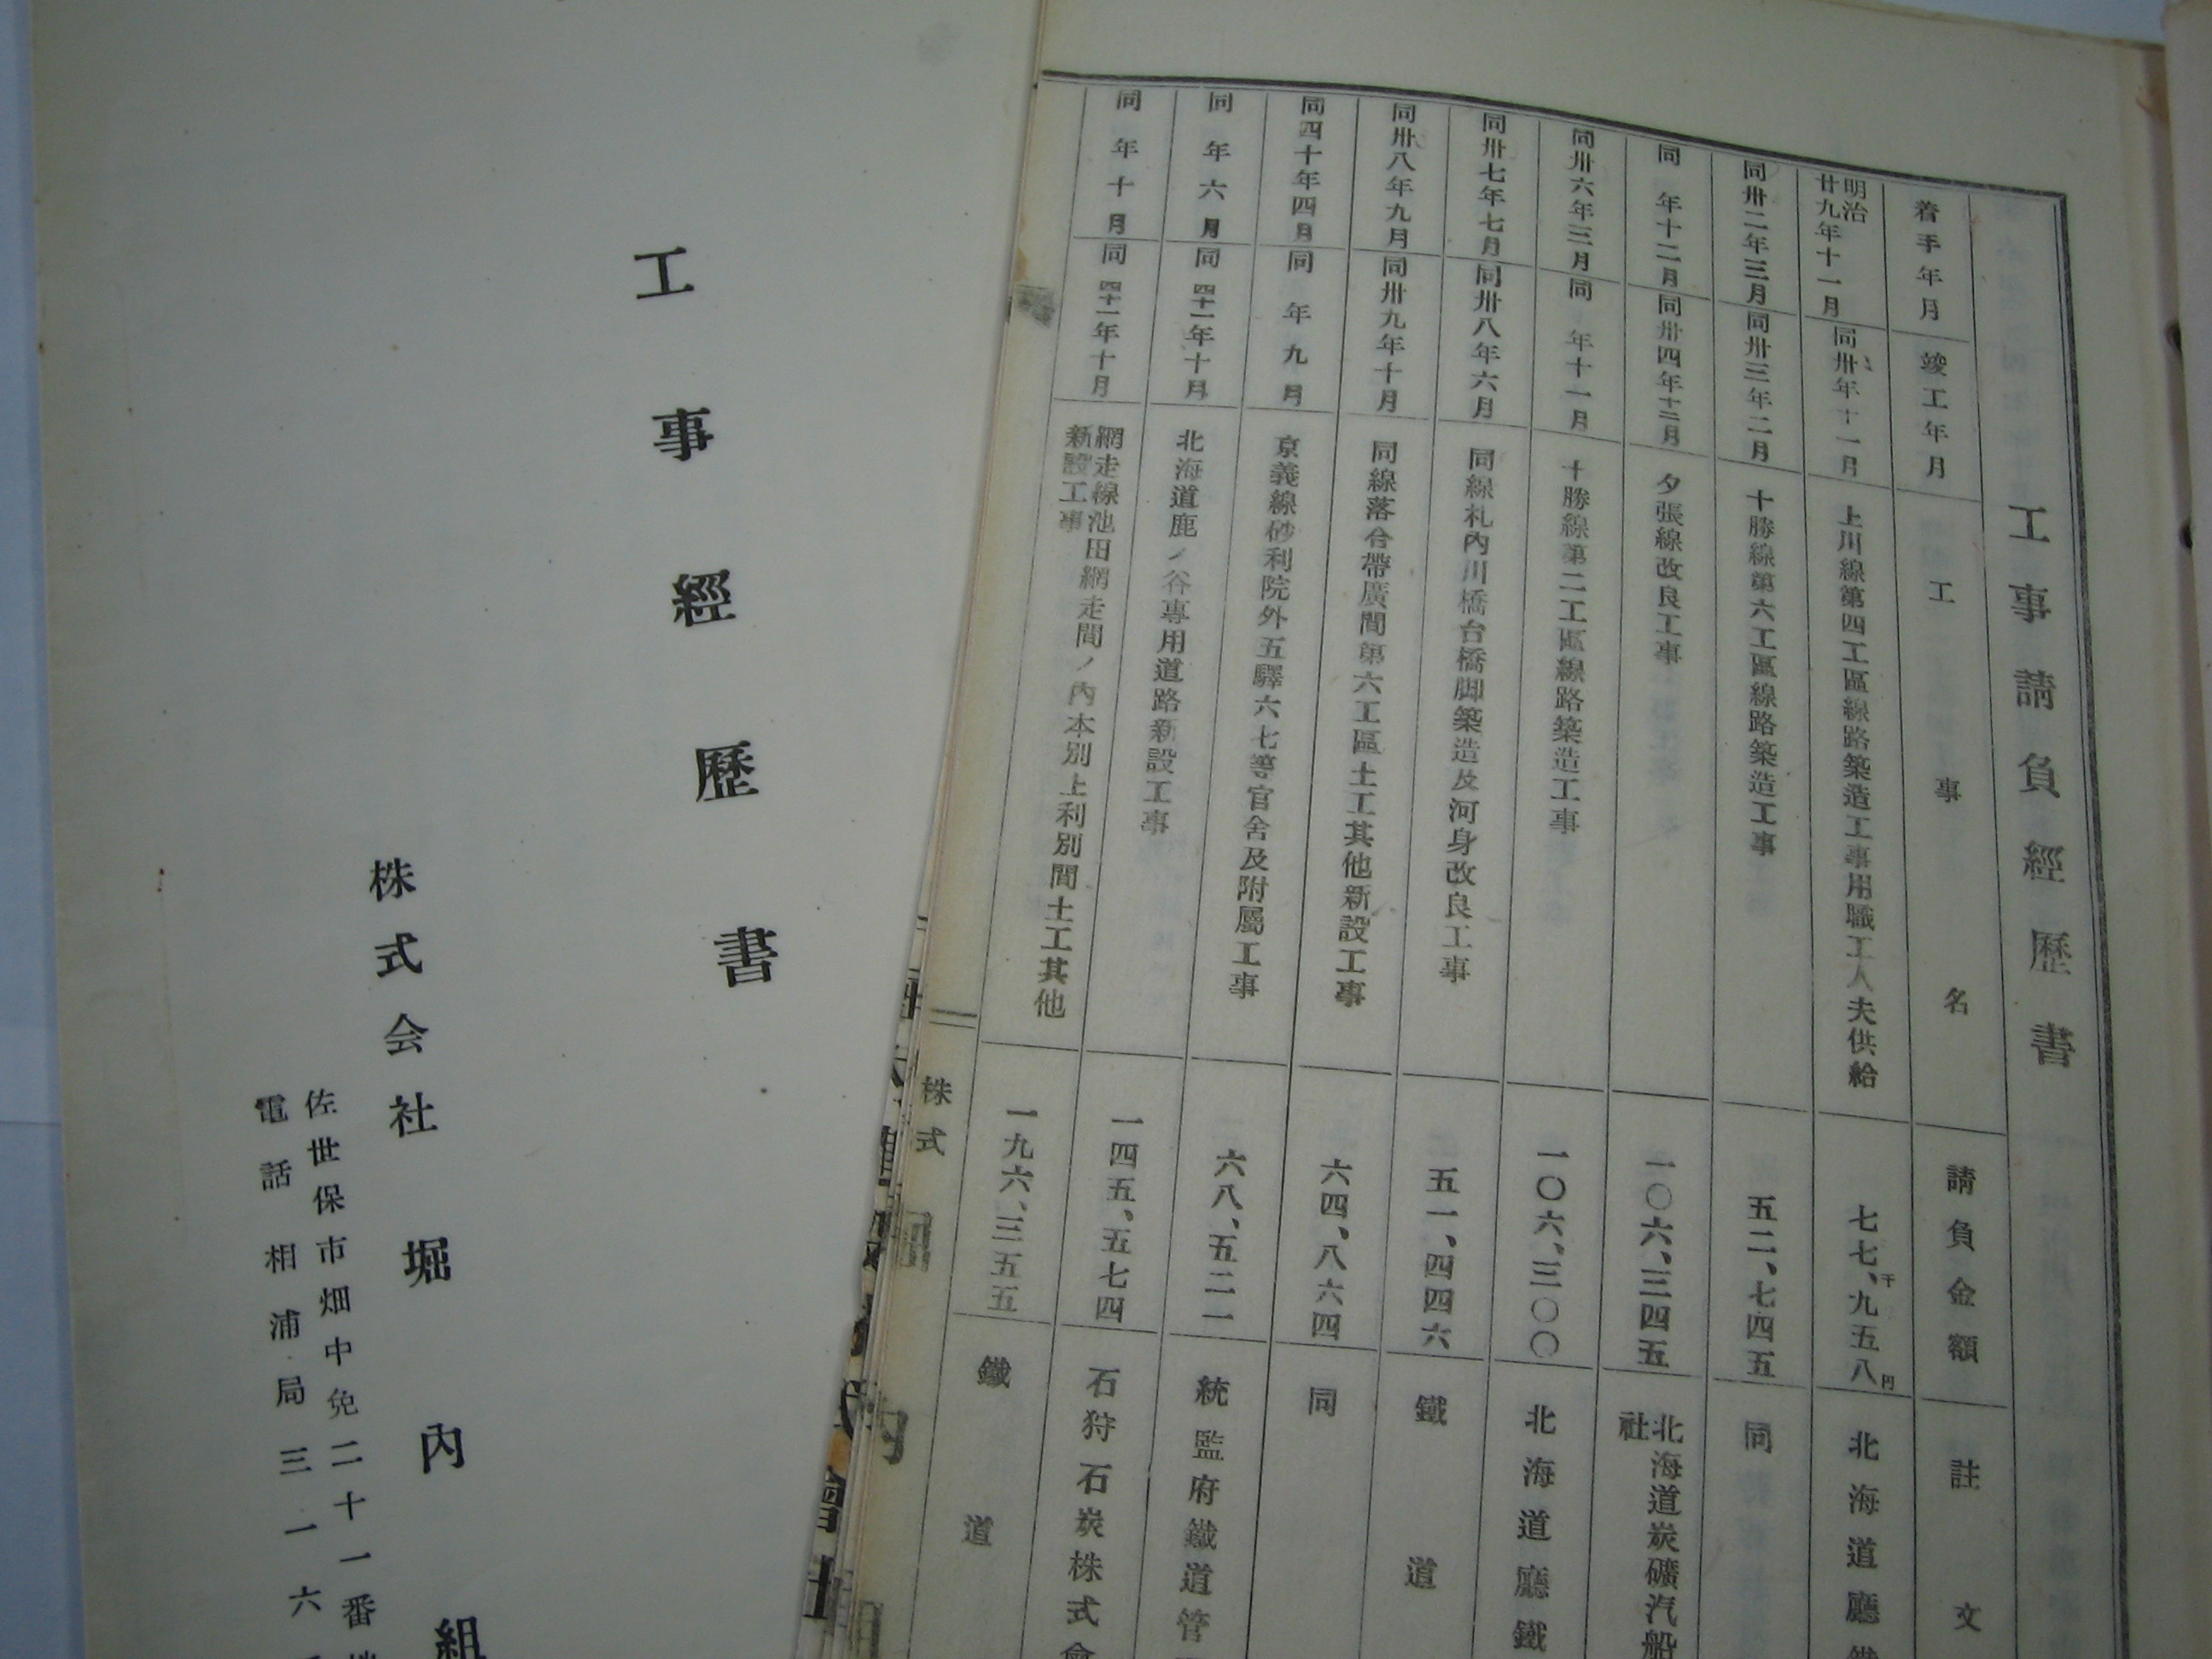 工事請負經歷書
着手年月 竣工年月 工事名 請負金額 註文
明治廿九年十一月 同卅年十一月 上川線第四工區線路築造工事用職工人夫供給 七七、千九五八円 北海道廳鐵
同卅二年三月 同卅三年二月 十勝線第六工區線路築造工事 五二、七四五 同
同年十二月 同卅四年十二月 夕張線改良工事 一〇六、三四五 北海道炭礦汽船社
同卅六年三月 同年十一月 十勝線第二工區線路築造工事 一〇六、三〇〇 北海道廳鐵
同卅七年七月 同卅八年六月 同線札內川橋台橋脚築造及河身改良工事 五一、四四六 鐵道
同卅八年九月 同卅九年十月 同線落合帶廣間第六工區土工其他新設工事 六四、八六四 同
同四十年四月 同年九月 京義線砂利院外五驛六七等官舍及附屬工事 六八、五二一 統監府鐵道管
同年六月 同四十一年十月 北海道鹿ノ谷專用道路新設工事 一四五、五七四 石狩石炭株式會
同年十月 同四十一年十月 網走線池田網走間ノ內本別上利別間土工其他新設工事 一九六、三五五 鐵道
株式
工事經歷書
株式会社堀內組
佐世保市畑中免二十一番
電話相浦局三一六